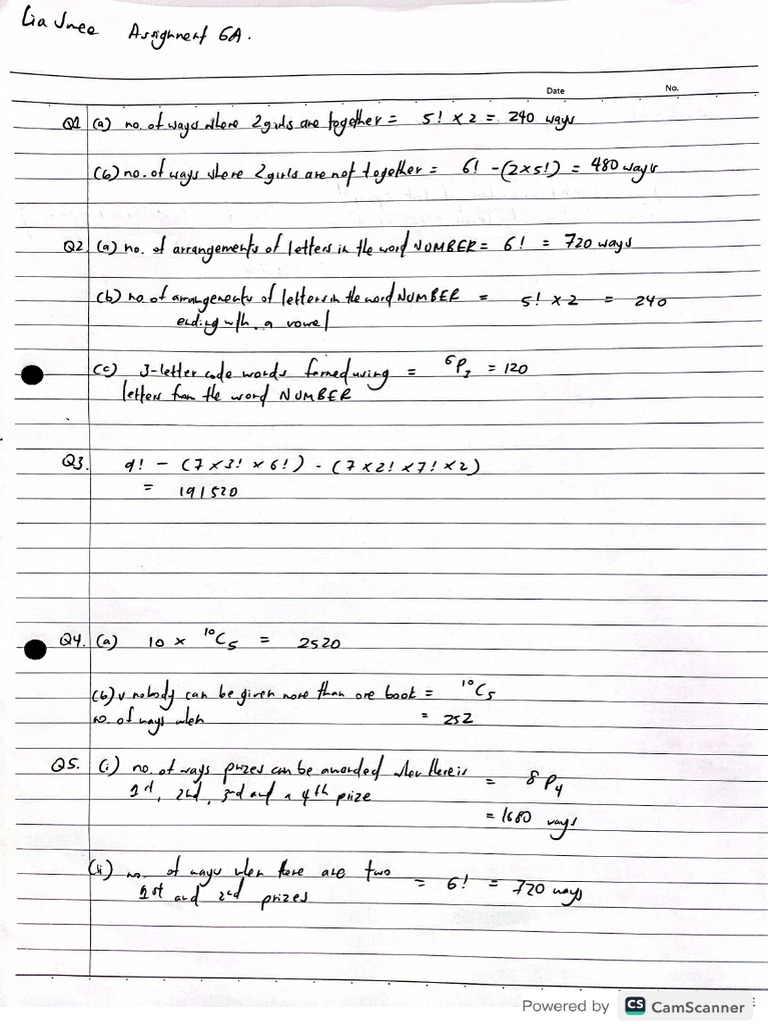 Lia Jnee Assignment 6A.
Date No.
Q1 (a) no. of ways where 2 girls are together = 5! × 2 = 240 ways
(b) no. of ways where 2 girls are not together = 6! - (2×5!) = 480 ways
Q2. (a) no. of arrangements of letters in the word NUMBER = 6! = 720 ways
(b) no of arrangements of letters in the word NUMBER = 5! × 2 = 240
ending with a vowel
(c) 3-letter code words formed using = ⁶P₃ = 120
letters from the word NUMBER
Q3. 9! - (7×3! × 6!) - (7×2! ×7! ×2)
= 191520
Q4. (a) 10 × ¹⁰C₅ = 2520
(b) nobody can be given more than one book = ¹⁰C₅
no. of ways when = 252
Q5. (i) no. of ways prizes can be awarded when there is = 8P₄
1st, 2nd, 3rd and a 4th prize
= 1680 ways
(ii) no. of ways when there are two = 6! = 720 ways
1st and 2nd prizes
Powered by CS CamScanner